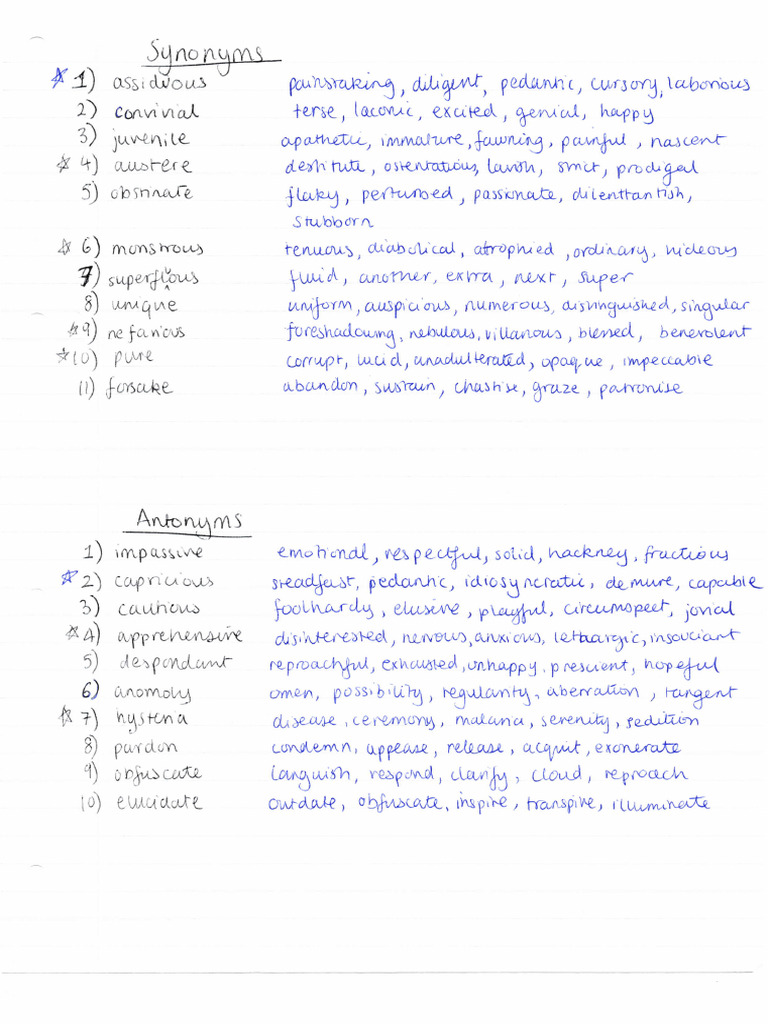 Synonyms
☆ 1) assiduous painstaking, diligent, pedantic, cursory, laborious
2) convivial terse, laconic, excited, genial, happy
3) juvenile apathetic, immature, fawning, painful, nascent
☆ 4) austere destitute, ostentatious, lavish, strict, prodigal
5) obstinate flaky, perturbed, passionate, dilenttantish,
stubborn
☆ 6) monstrous tenuous, diabolical, atrophied, ordinary, hideous
7) superfluous fluid, another, extra, next, super
8) unique uniform, auspicious, numerous, distinguished, singular
☆ 9) nefarious foreshadowing, nebulous, villanous, blessed, benevolent
☆ 10) pure corrupt, lucid, unadulterated, opaque, impeccable
11) forsake abandon, sustain, chastise, graze, patronise
Antonyms
1) impassive emotional, respectful, solid, hackney, fractious
☆ 2) capricious steadfast, pedantic, idiosyncratic, demure, capable
3) cautious foolhardy, elusive, playful, circumspect, jovial
☆ 4) apprehensive disinterested, nervous, anxious, lethargic, insouciant
5) despondant reproachful, exhausted, unhappy, prescient, hopeful
6) anomoly omen, possibility, regularity, aberration, tangent
☆ 7) hysteria disease, ceremony, malaria, serenity, sedition
8) pardon condemn, appease, release, acquit, exonerate
9) obfuscate languish, respond, clarify, cloud, reproach
10) elucidate outdate, obfuscate, inspire, transpire, illuminate